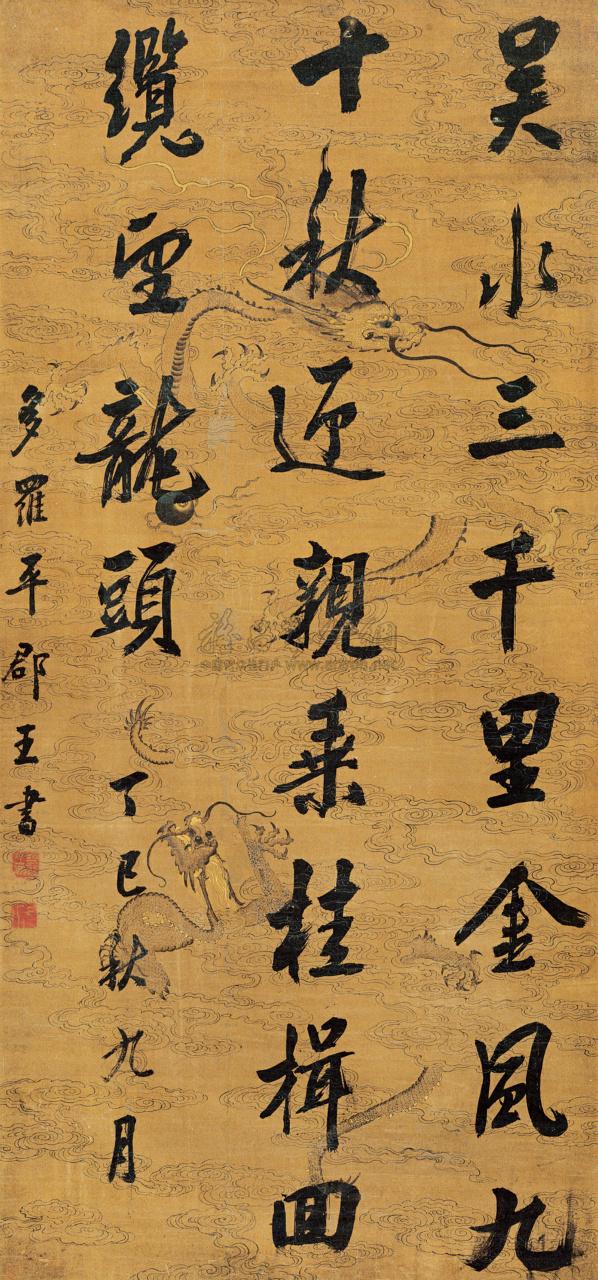 吳水三千里金風九
十秋迎親乘桂楫囬
纜望龍頭
丁巳秋九月
多羅平郡王書